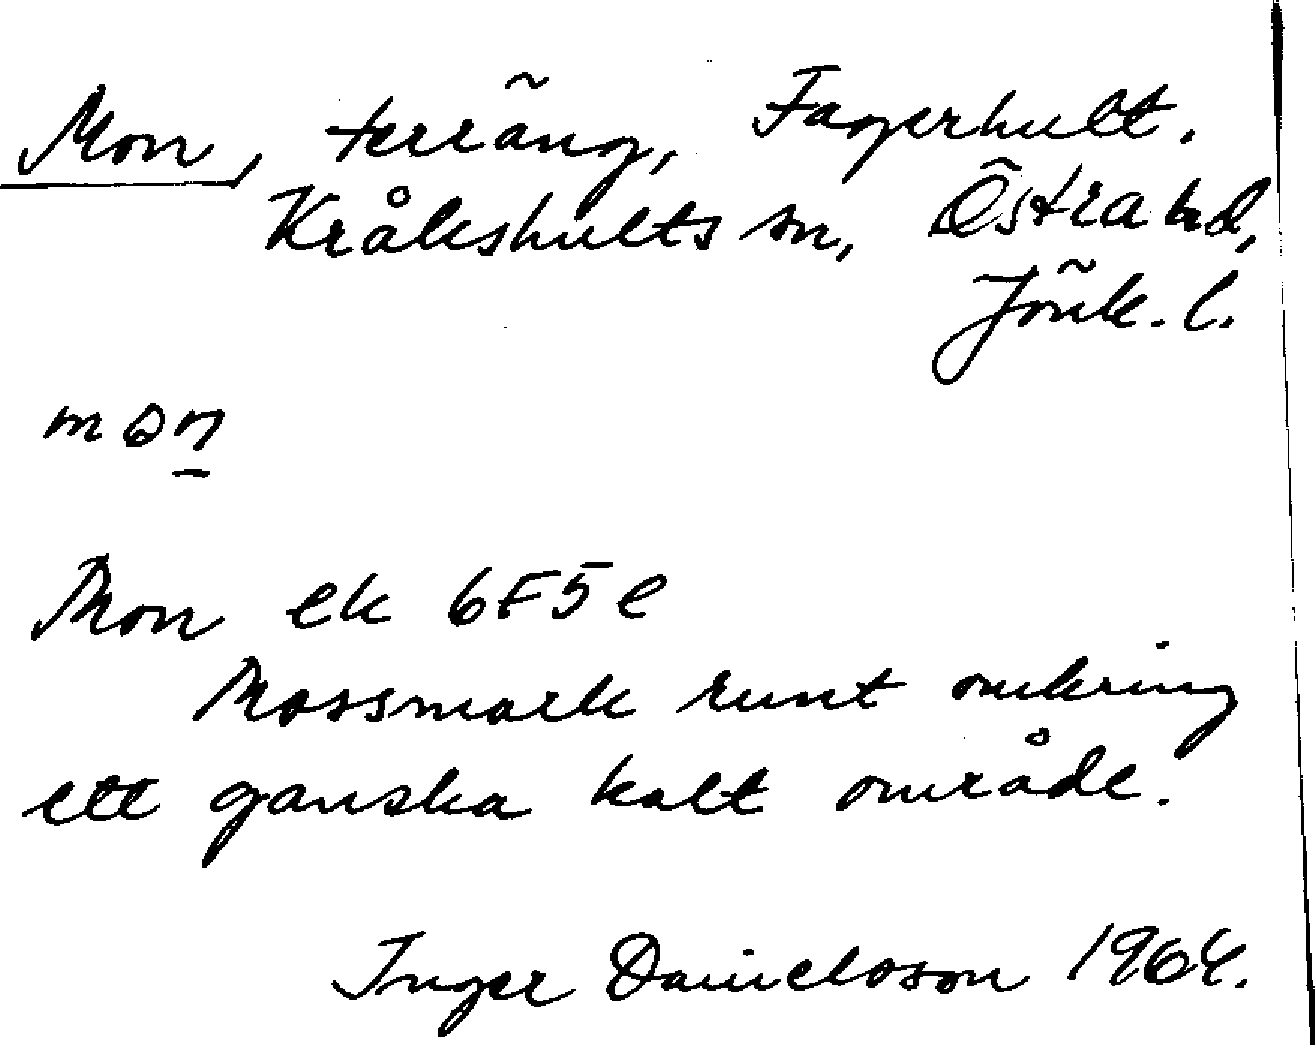 Mon, terräng, Fagerhult.
Kråkshults sn, Östra hd,
Jönk. l.
Mon ek 6F5e
Mossmark runt omkring
ett ganska kalt område.
Inger Danielsson 1964.